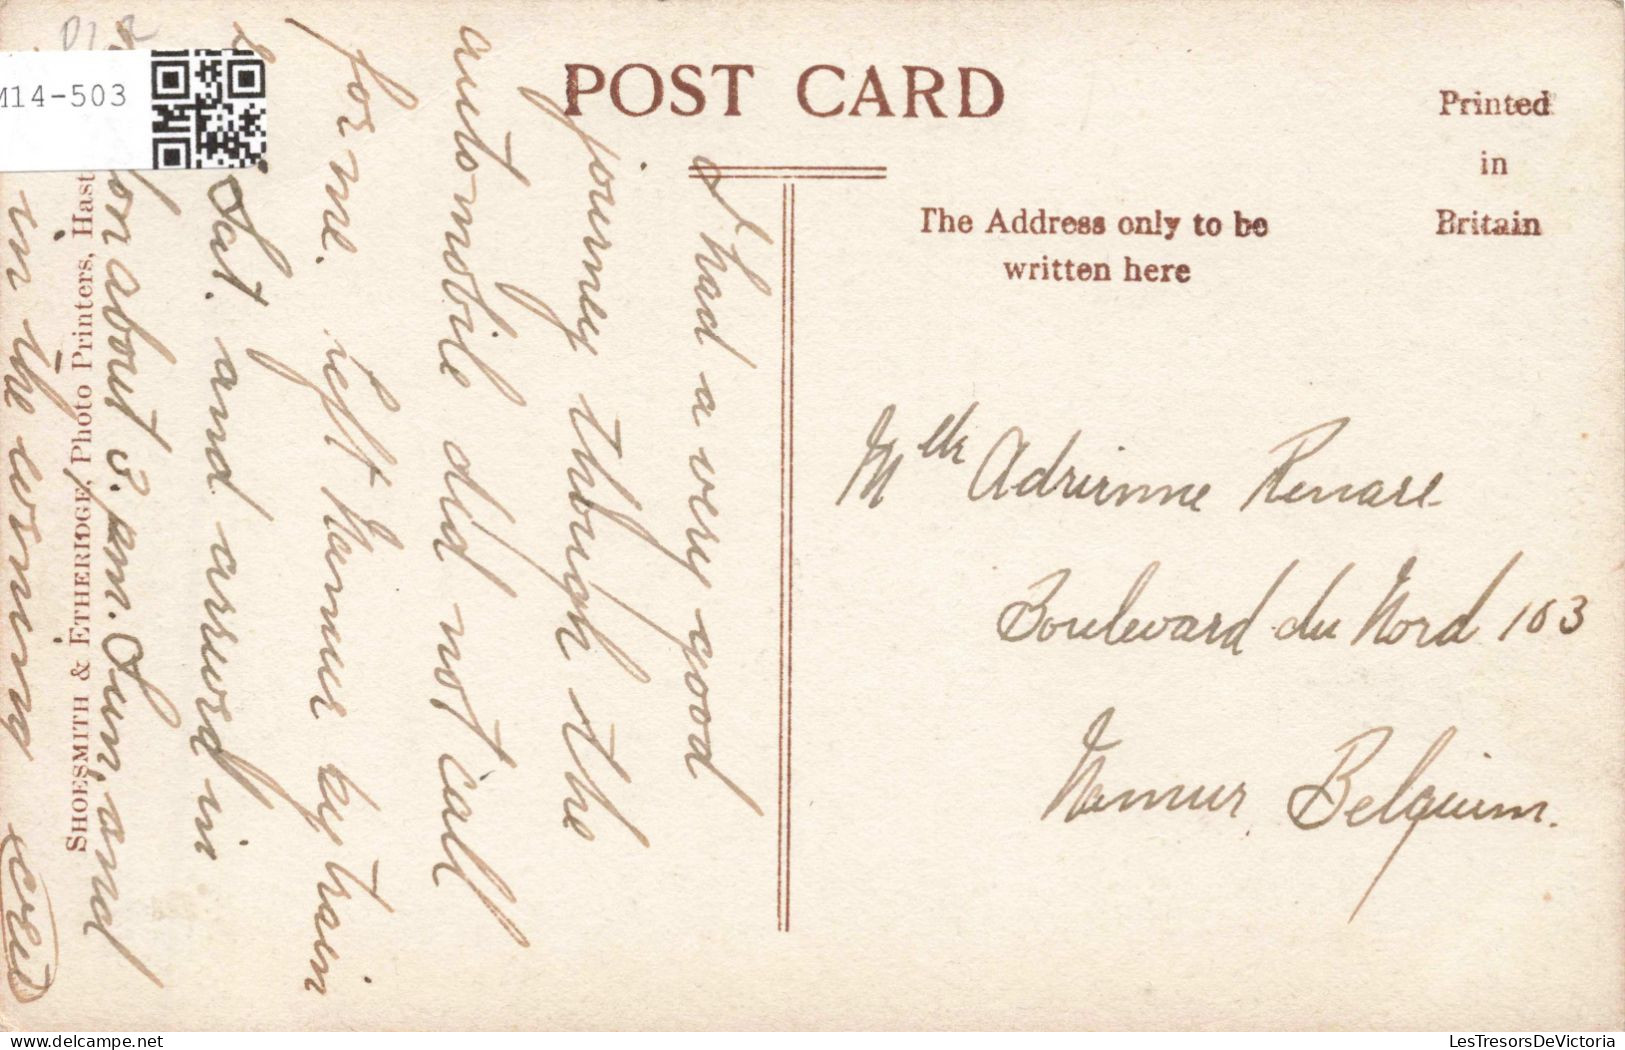 M14-503
POST CARD
Printed
in
Britain
The Address only to be
written here
I had a very good
journey though the
automobile did not call
for me. left Namur by train
Sat. and arrived in
on about 3. pm. Sun, and
in the
SHOESMITH & ETHERIDGE, Photo Printers, Hast
Mlle Adrienne Renard
Boulevard du Nord 103
Namur Belgium.
delcampe.net
LesTresorsDeVictoria